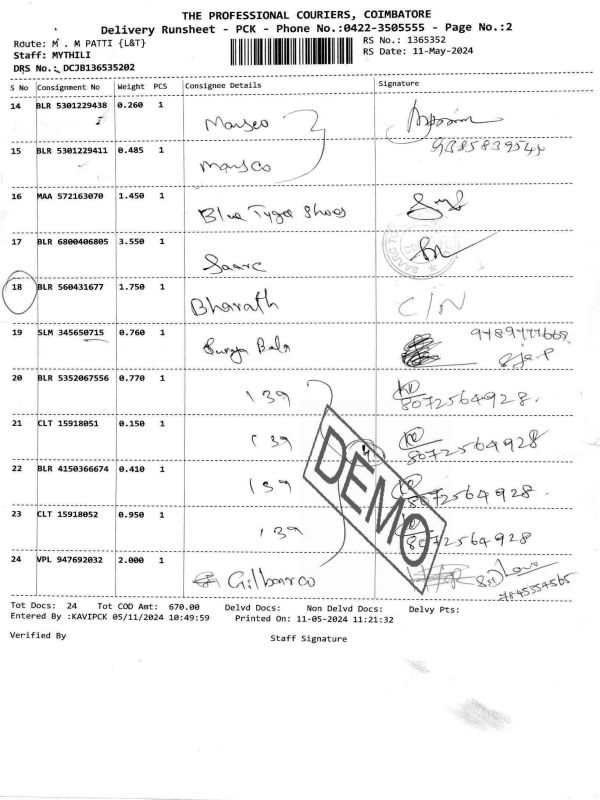 THE PROFESSIONAL COURIERS, COIMBATORE
Delivery Runsheet - PCK - Phone No.:0422-3505555 - Page No.:2
Route: M . M PATTI {L&T}
RS No.: 1365352
Staff: MYTHILI
RS Date: 11-May-2024
DRS No.: DCJB136535202
S No Consignment No Weight PCS Consignee Details Signature
14 BLR 5301229438 0.260 1 Marsco
15 BLR 5301229411 0.485 1 Marsco
16 MAA 572163070 1.450 1 Blue Tyga Shoes
17 BLR 6800406805 3.550 1 Saarc
18 BLR 560431677 1.750 1 Bharath C/N
19 SLM 345650715 0.760 1 Surya Bala
20 BLR 5352067556 0.770 1 139 8072564928.
21 CLT 15918051 0.150 1 139 8072564928
22 BLR 4150366674 0.410 1 139 8072564928.
23 CLT 15918052 0.950 1 139 8072564928
24 VPL 947692032 2.000 1 Gilbarco
DEMO
Tot Docs: 24 Tot COD Amt: 670.00 Delvd Docs: Non Delvd Docs: Delvy Pts:
Entered By :KAVIPCK 05/11/2024 10:49:59 Printed On: 11-05-2024 11:21:32
Verified By Staff Signature